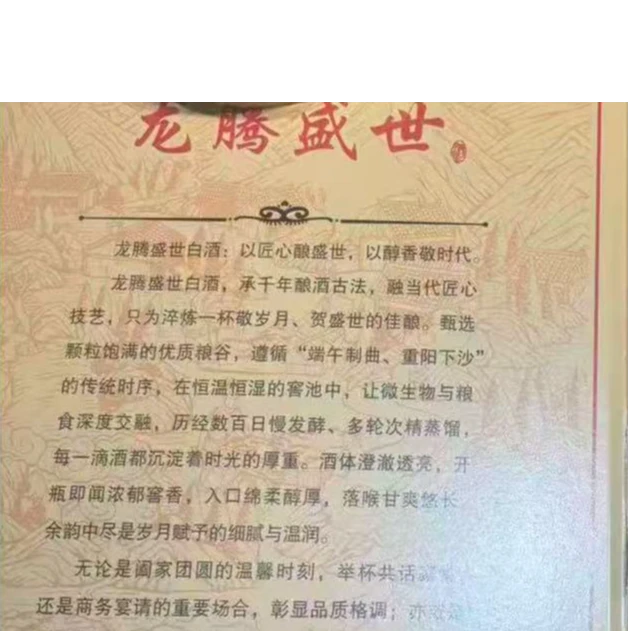 龙腾盛世
龙腾盛世白酒：以匠心酿盛世，以醇香敬时代。
龙腾盛世白酒，承千年酿酒古法，融当代匠心
技艺，只为淬炼一杯敬岁月、贺盛世的佳酿。甄选
颗粒饱满的优质粮谷，遵循“端午制曲、重阳下沙”
的传统时序，在恒温恒湿的窖池中，让微生物与粮
食深度交融，历经数百日慢发酵、多轮次精蒸馏，
每一滴酒都沉淀着时光的厚重。酒体澄澈透亮，开
瓶即闻浓郁窖香，入口绵柔醇厚，落喉甘爽悠长
余韵中尽是岁月赋予的细腻与温润。
无论是阖家团圆的温馨时刻，举杯共话
还是商务宴请的重要场合，彰显品质格调；亦